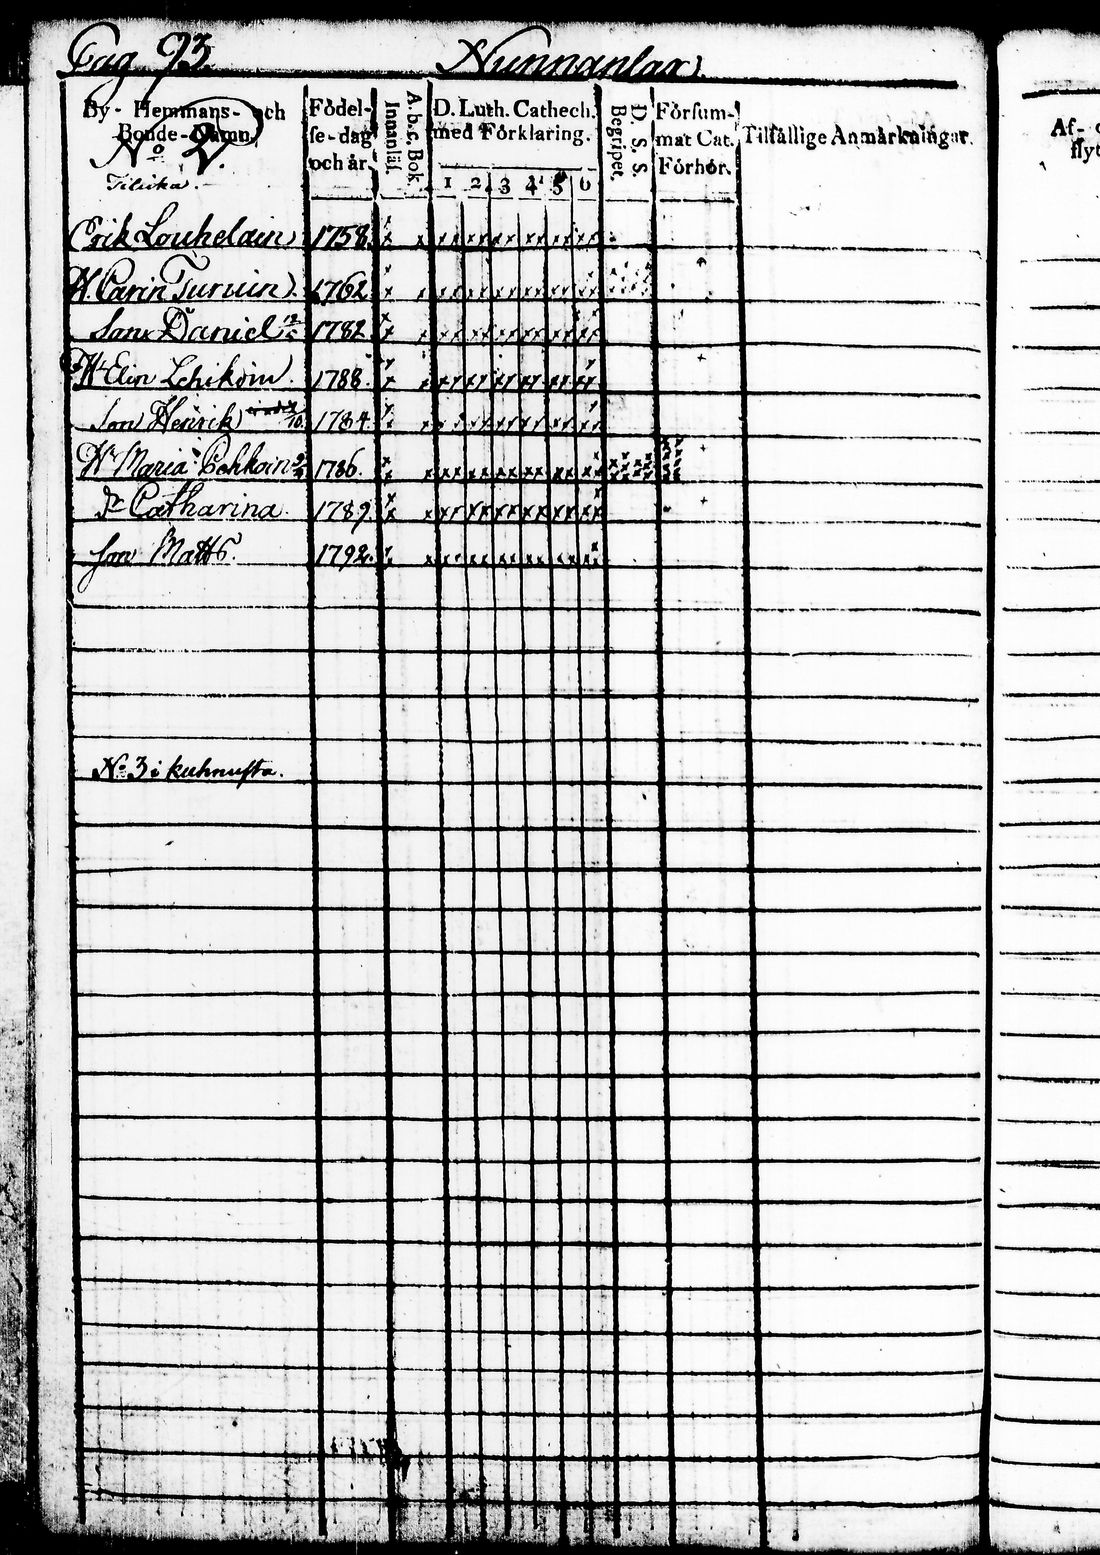 Pag. 93. Nunnanlax.
By- Hemmans- och Bonde-Namn.
Födel-se-dag och år.
Innanläs.
A. b. c. Bok.
D. Luth. Cathech. med Förklaring.
1 2 3 4 5 6
Begripet.
D. S. S.
Försum-mat Cat. Förhör.
Tilfällige Anmärkningar.
Af- o
flyt
No 2.
Erik Louhelain 1758.
H. Carin Turuin 1762
Son Daniel 1782
H. Elin Lehikoin. 1788.
Son Henrik 1784
H. Maria 1786.
Dr Catharina. 1789
Son Matts. 1792.
No 3 i kuhnusta.